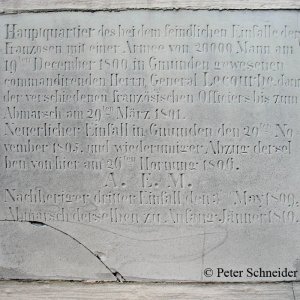 Hauptquartier des bei dem feindlichen Einfalle der
Franzosen mit einer Armee von 20000 Mann am
19ten December 1800, in Gmunden gewesenen
commandirenden Herrn General Lecourbe, dan
der verschiedenen französischen Officiers bis zum
Abmarsch am 29ten März 1801.
Neuerlicher Einfall in Gmunden den 20ten No
vember 1805, und wiederumiger Abzug dersel
ben von hier am 26ten Hornung 1806.
A. E. M.
Nachheriger dritter Einfall den 3ten May 1809,
Abmarsch derselben zu Anfang Jänner 1810.
© Peter Schneider